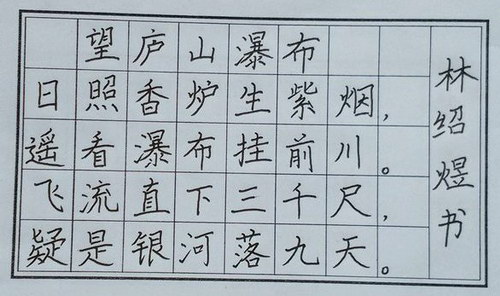 望庐山瀑布
日照香炉生紫烟，
遥看瀑布挂前川。
飞流直下三千尺，
疑是银河落九天。
林绍煜书